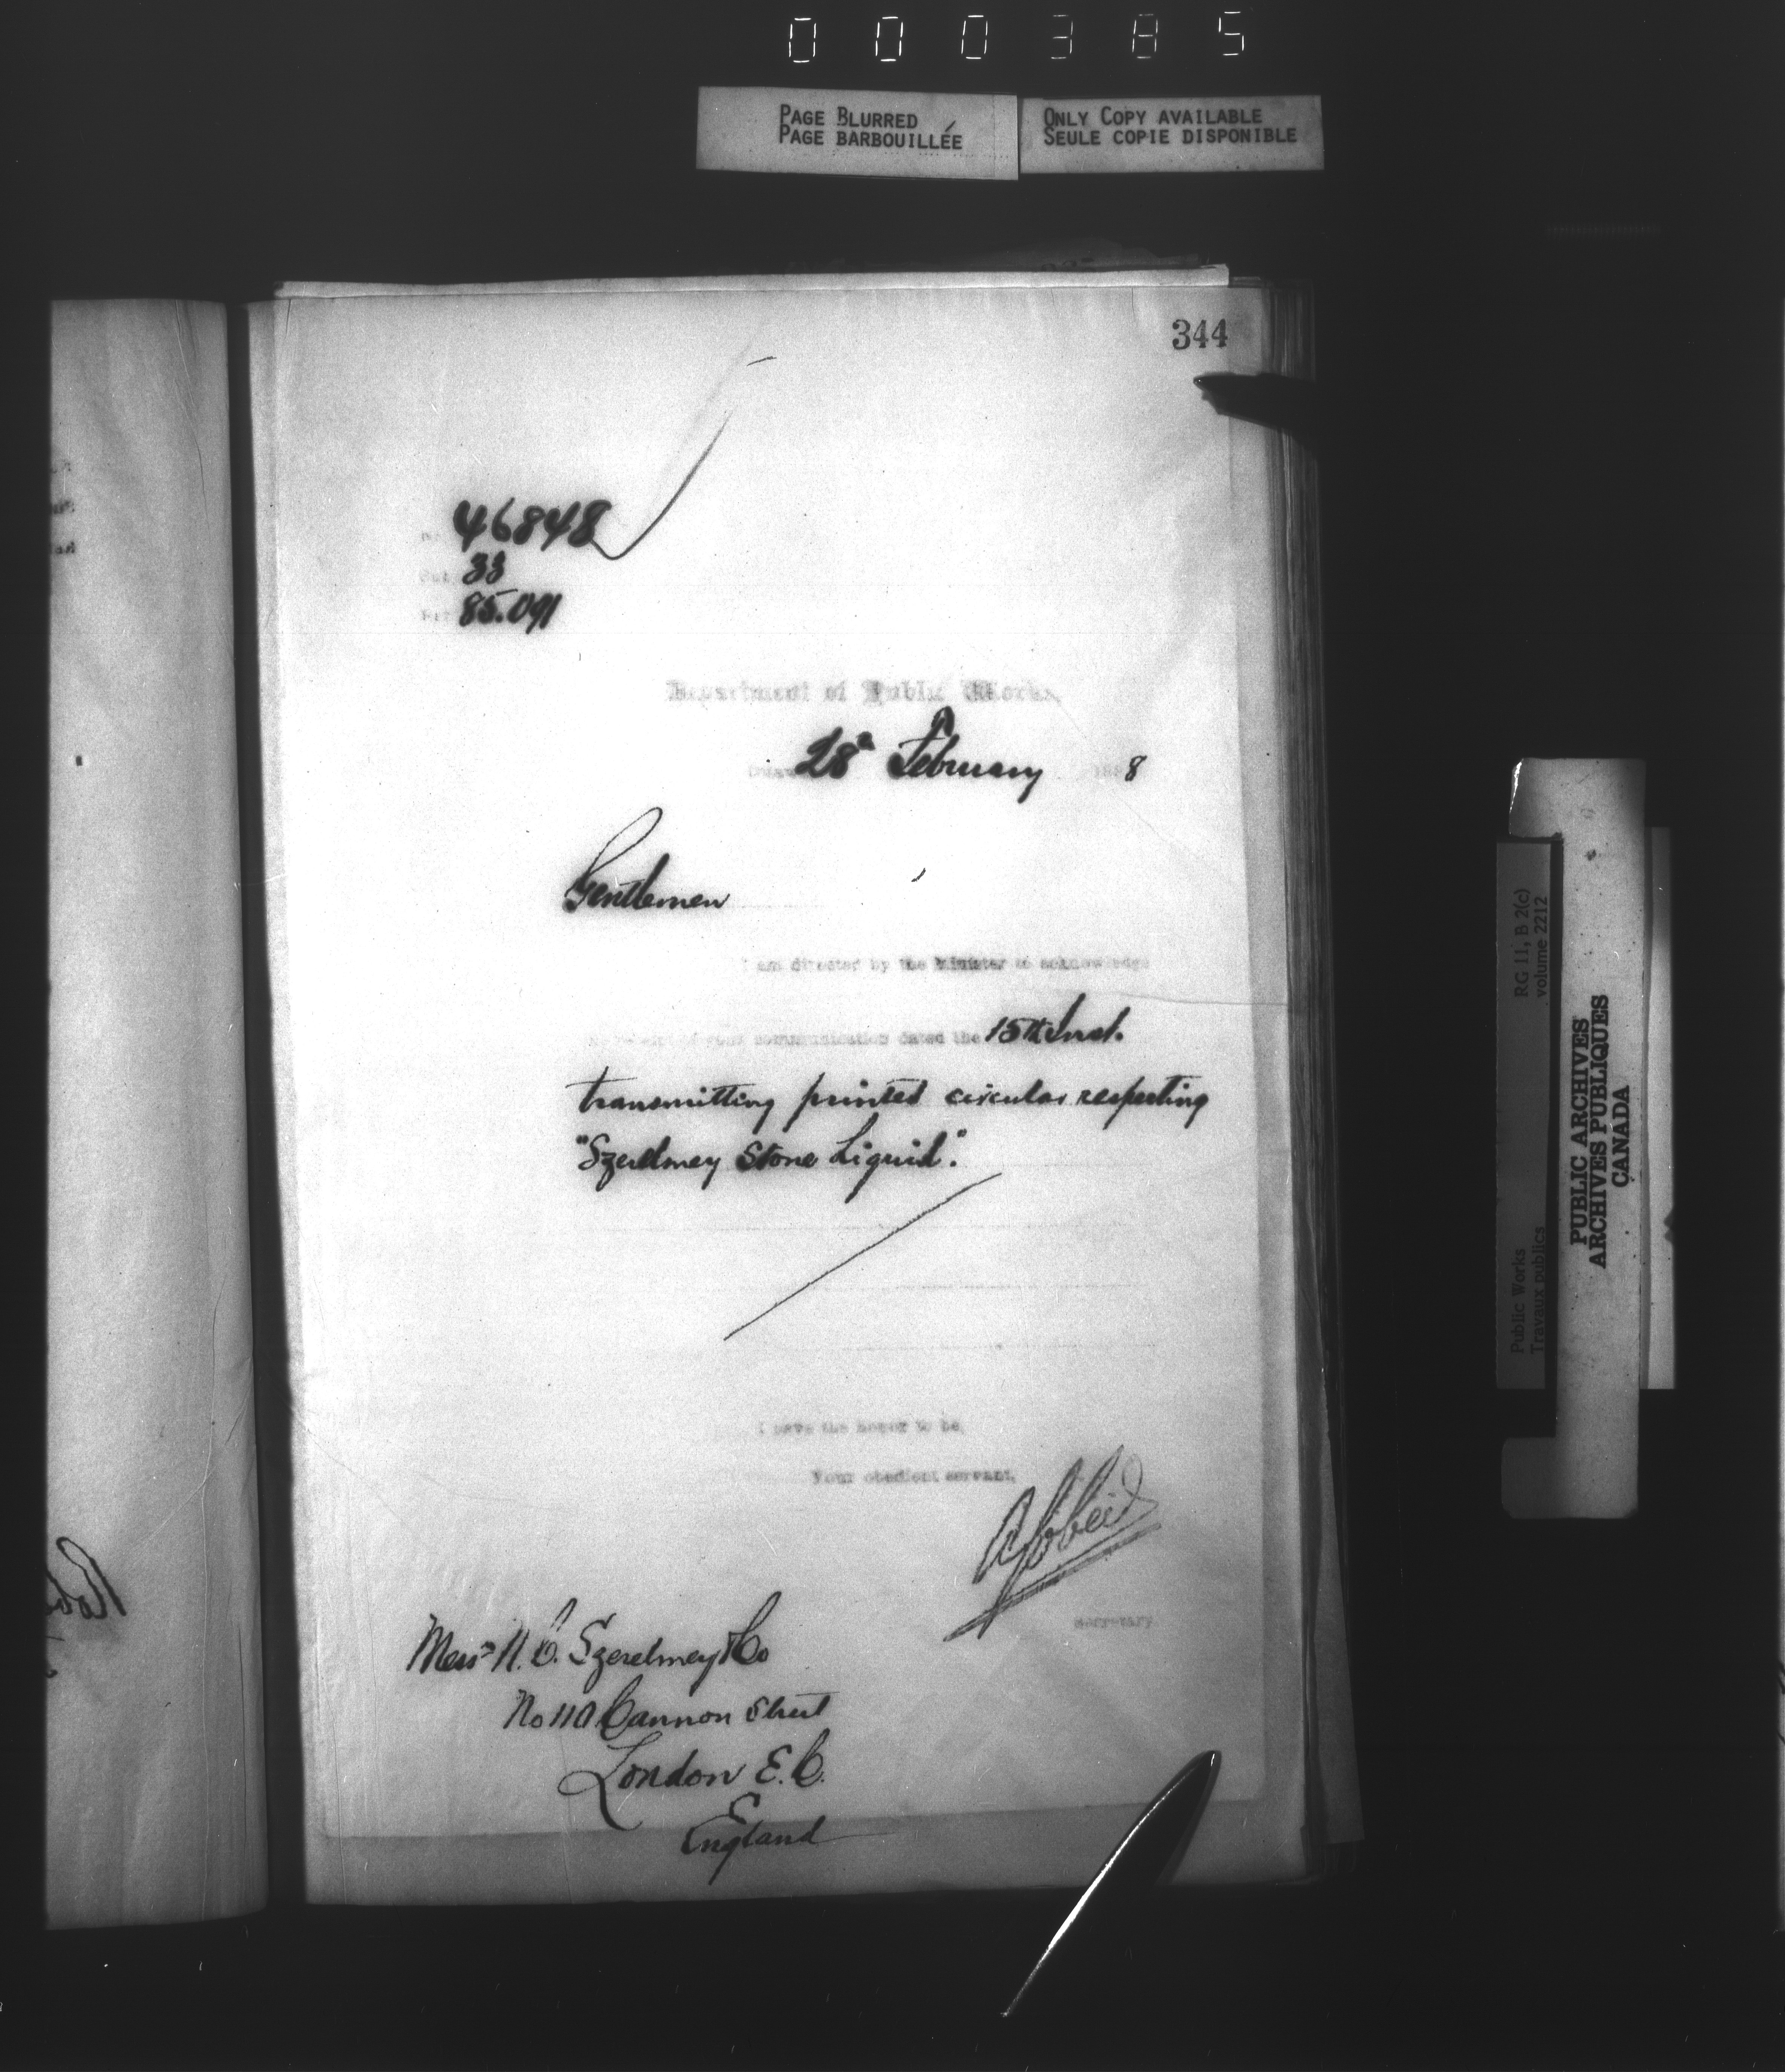 000385
PAGE BLURRED
PAGE BARBOUILLÉE
ONLY COPY AVAILABLE
SEULE COPIE DISPONIBLE
344
No. 46848
Sub. 33
Ref. 85.091
Department of Public Works,
Ottawa, 28th February 1888
Gentlemen
I am directed by the Minister to acknowledge
the receipt of your communication dated the 15th Inst.
transmitting printed circular respecting
"Szerelmey Stone Liquid".
I have the honor to be,
Your obedient servant,
Secretary
Messrs N. C. Szerelmey & Co
No 110 Cannon Street
London E. C.
England
RG 11, B 2(c)
volume 2212
Public Works
Travaux publics
PUBLIC ARCHIVES
ARCHIVES PUBLIQUES
CANADA